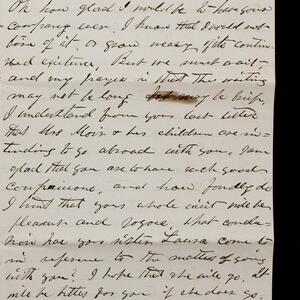 Oh how glad I would be to have your
company ever. I know that I would not
tire of it, or grow weary of its contin-
ued existence. But we must wait-
and my prayer is that the waiting
may not be long may be brief,
I understand from your last letter
that Mrs Moir & her children are in-
tending to go abroad with you. I am
glad that you are to have such good
companions, and how fondly do
I trust that your whole visit will be
pleasant and joyous, What conclu-
sion has your sister Laura come to
in reference to the matter of going
with you? I hope that she will go. It
will be better for you if she does go.